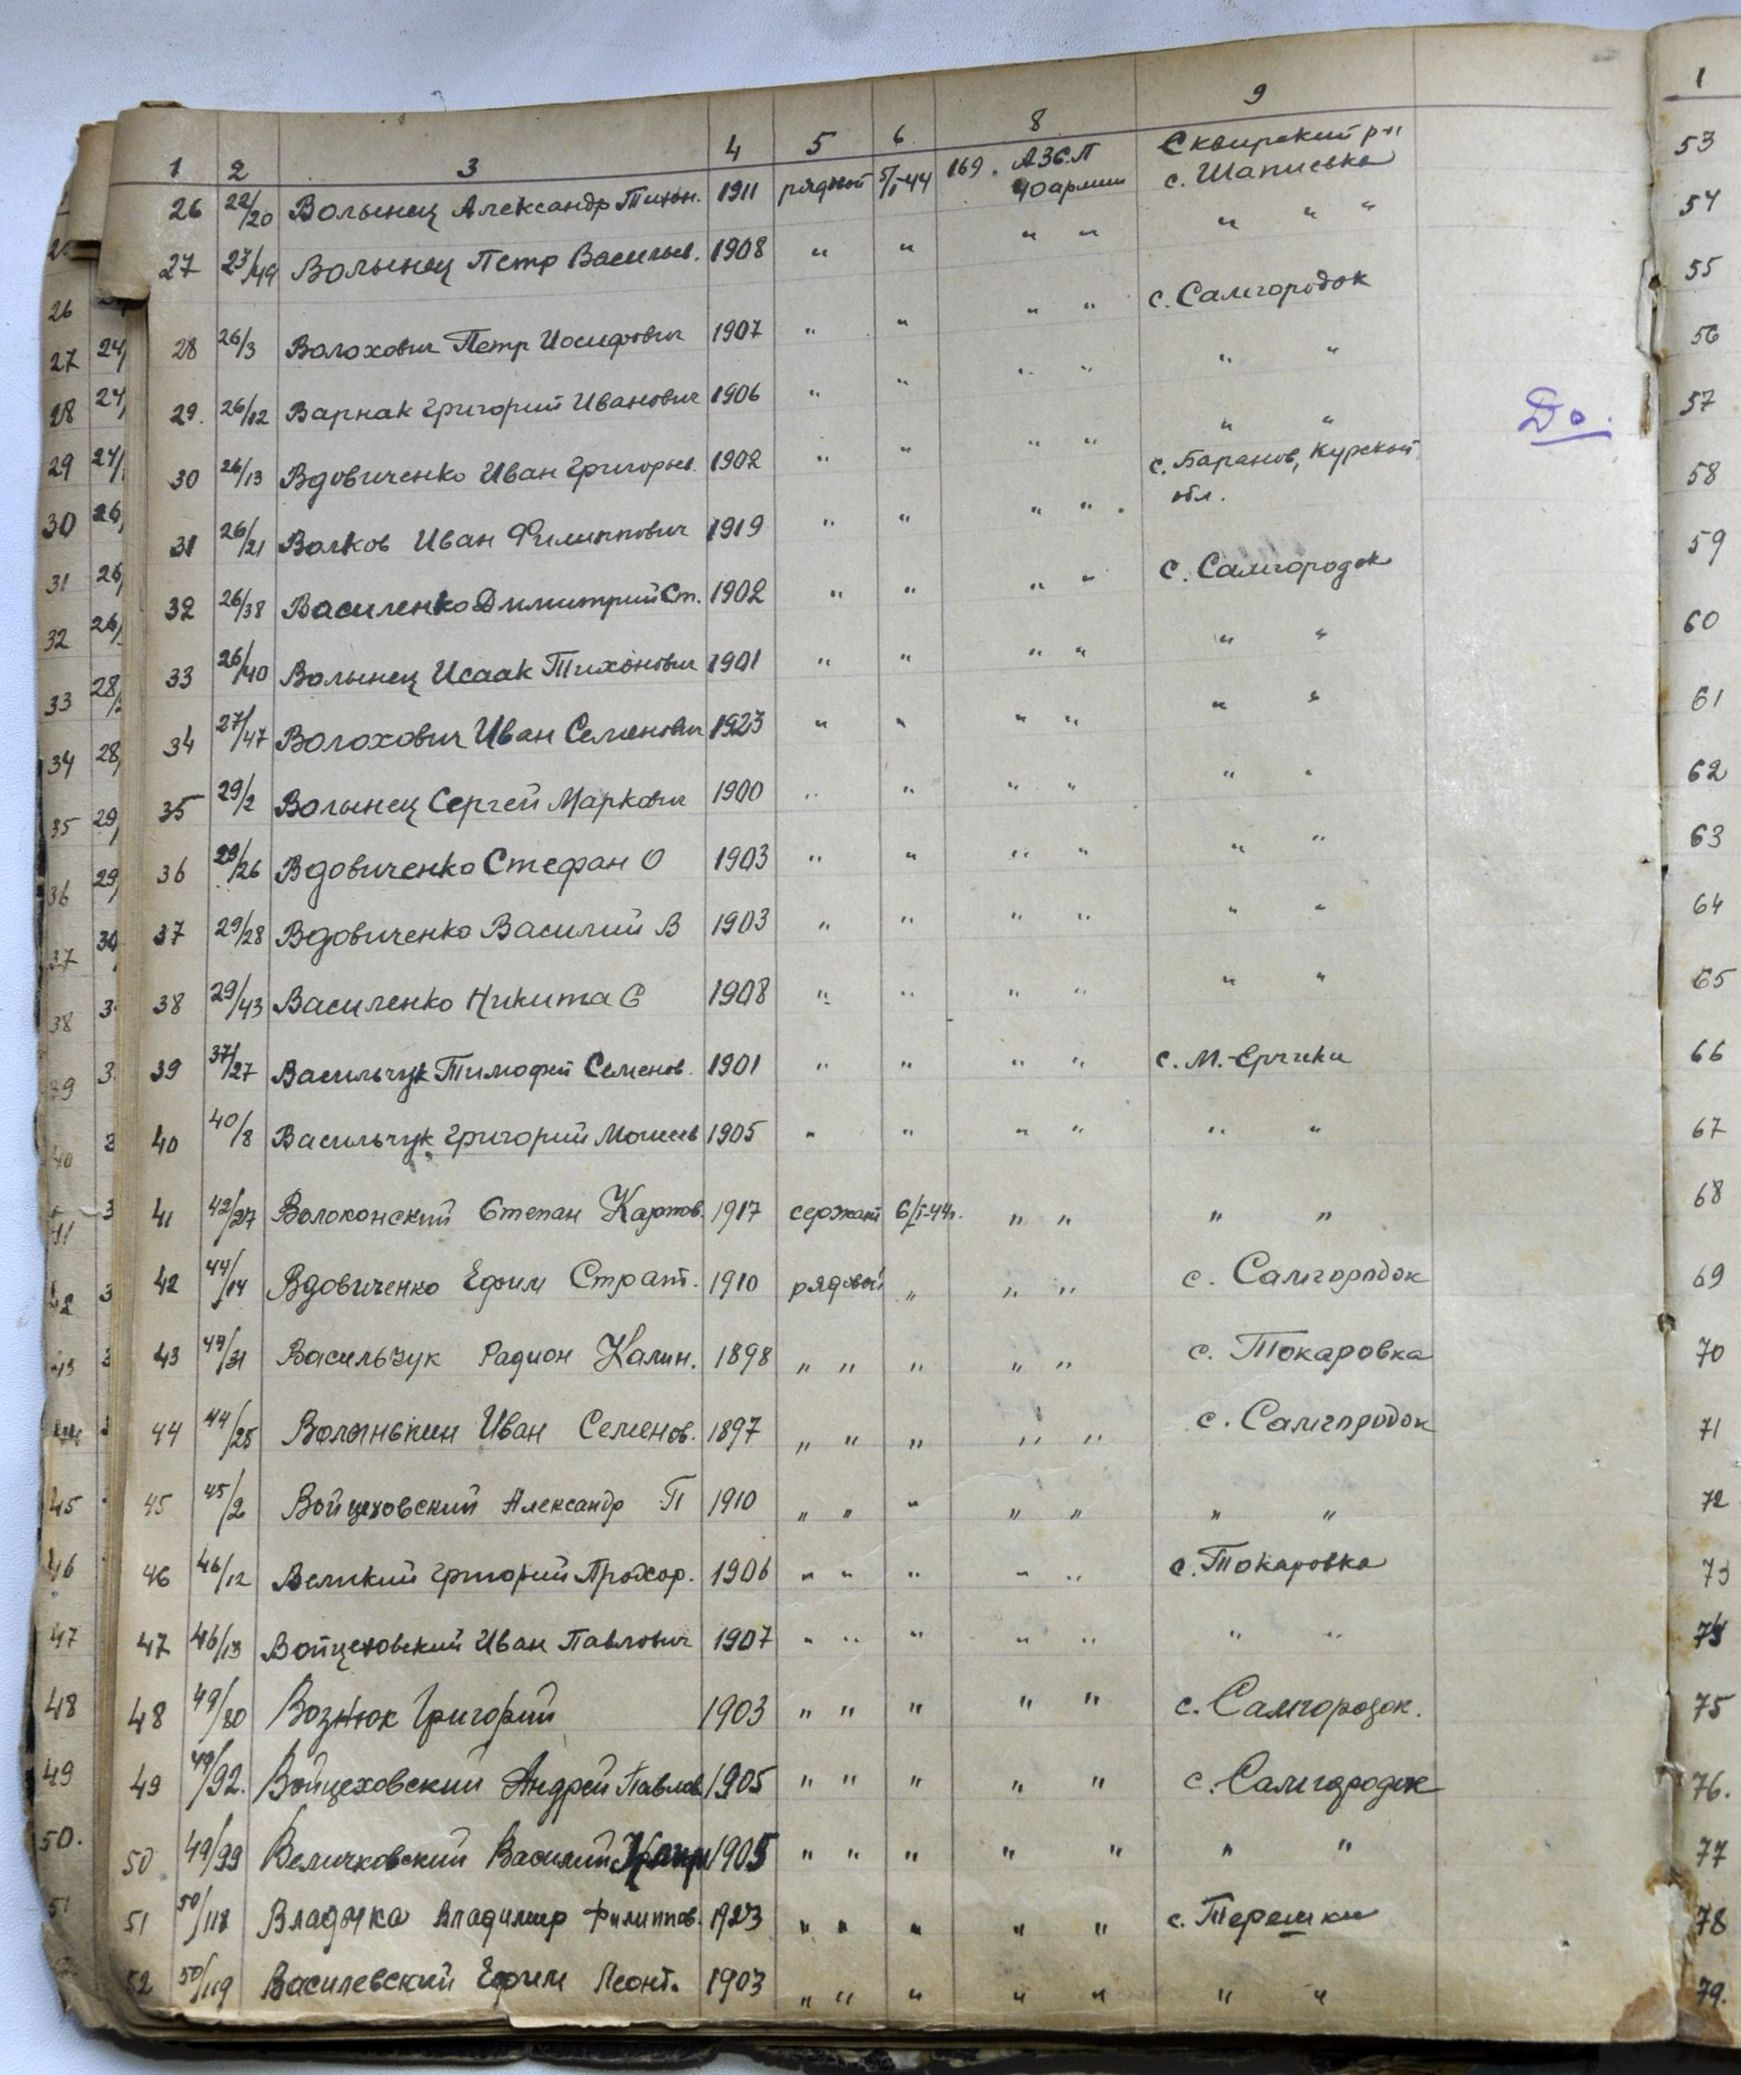 1 2 3 4 5 6 8 9
26 22/20 Волынец Александр Тихон. 1911 рядовой 5/I-44 169. АЗСП 40 армии Сквирский р-н с. Шапиевка
27 23/49 Волынец Петр Васильев. 1908 " " " " " " "
28 26/3 Волохович Петр Иосифович 1907 " " " " с. Самгородок
29. 26/12 Варнак Григорий Иванович 1906 " " " " " "
30 26/13 Вдовиченко Иван Григорьев. 1902 " " " " " "
31 26/21 Волков Иван Филиппович 1919 " " " " с. Баранов, Курской обл.
32 26/38 Василенко Димитрий Ст. 1902 " " " " с. Самгородок
33 26/40 Волынец Исаак Тихонович 1901 " " " " " "
34 27/47 Волохович Иван Семенович 1923 " " " " " "
35 29/2 Волынец Сергей Маркович 1900 " " " " " "
36 29/26 Вдовиченко Стефан О 1903 " " " " " "
37 29/28 Вдовиченко Василий В 1903 " " " " " "
38 29/43 Василенко Никита С 1908 " " " " " "
39 37/27 Васильчук Тимофей Семенов. 1901 " " " " с. М.-Ерчики
40 40/8 Васильчук Григорий Моисеев 1905 " " " " " "
41 42/27 Волоконский Степан Карпов. 1917 сержант 6/I-44г. " " " "
42 44/14 Вдовиченко Ефим Страт. 1910 рядовой " " " с. Самгородок
43 47/31 Васильчук Радион Калин. 1898 " " " " " с. Токаровка
44 44/25 Волынькин Иван Семенов. 1897 " " " " " с. Самгородок
45 45/2 Войцеховский Александр П 1910 " " " " " " "
46 46/12 Великий Григорий Прохор. 1906 " " " " " с. Токаровка
47 46/13 Войцеховский Иван Павлович 1907 " " " " " " "
48 49/80 Вознюк Григорий 1903 " " " " " с. Самгородок.
49 49/92. Войцеховский Андрей Павлов 1905 " " " " " с. Самгородок
50 49/99 Величковский Василий 1905 " " " " " " "
51 50/118 Владычка Владимир Филиппов. 1923 " " " " " с. Терешки
52 50/119 Василевский Ефим Леонт. 1903 " " " " " " "
До.
26
27 24/
28 24/
29 24/
30 26/
31 26/
32 26/
33 28/
34 28/
35 29/
36 29/
37 30
38 3
39 3
40 3
41 3
3
43 3
45
46
47
48
49
50.
51
1
53
54
55
56
57
58
59
60
61
62
63
64
65
66
67
68
69
70
71
72
73
74
75
76.
77
78
79.